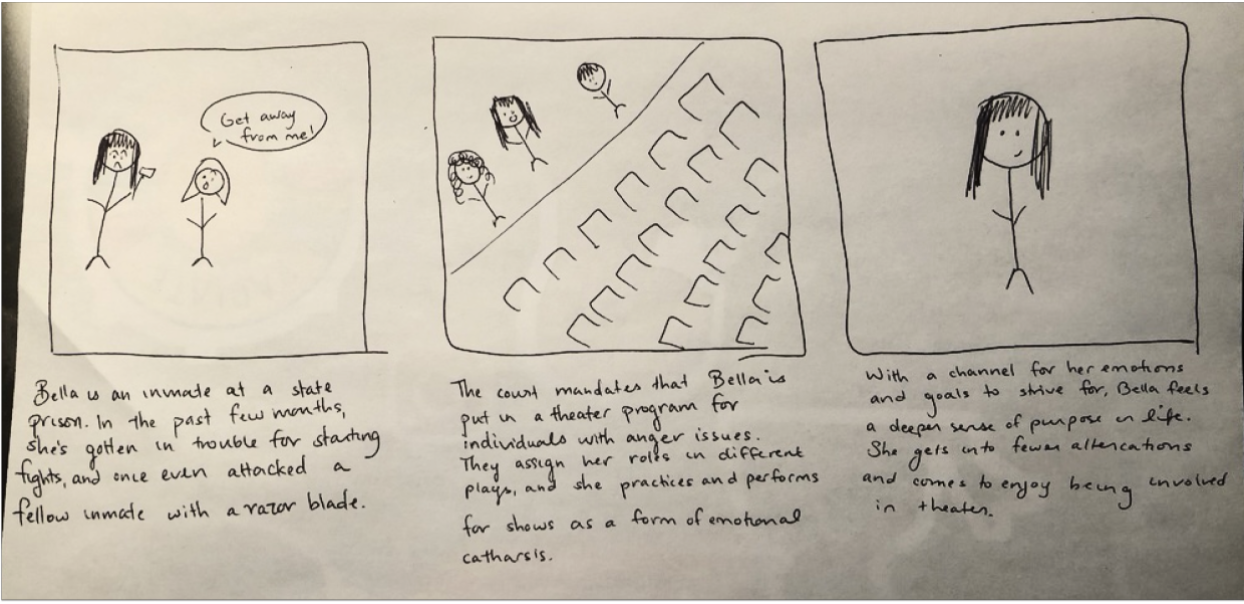 Get away
from me!
Bella is an inmate at a state
prison. In the past few months,
she's gotten in trouble for starting
fights, and once even attacked a
fellow inmate with a razor blade.
The court mandates that Bella is
put in a theater program for
individuals with anger issues.
They assign her roles in different
plays, and she practices and performs
for shows as a form of emotional
catharsis.
With a channel for her emotions
and goals to strive for, Bella feels
a deeper sense of purpose in life.
She gets into fewer altercations
and comes to enjoy being involved
in theater.